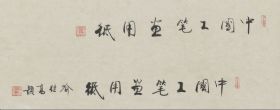 中國工笔畫用紙
中國工笔畫用紙 喻继高題